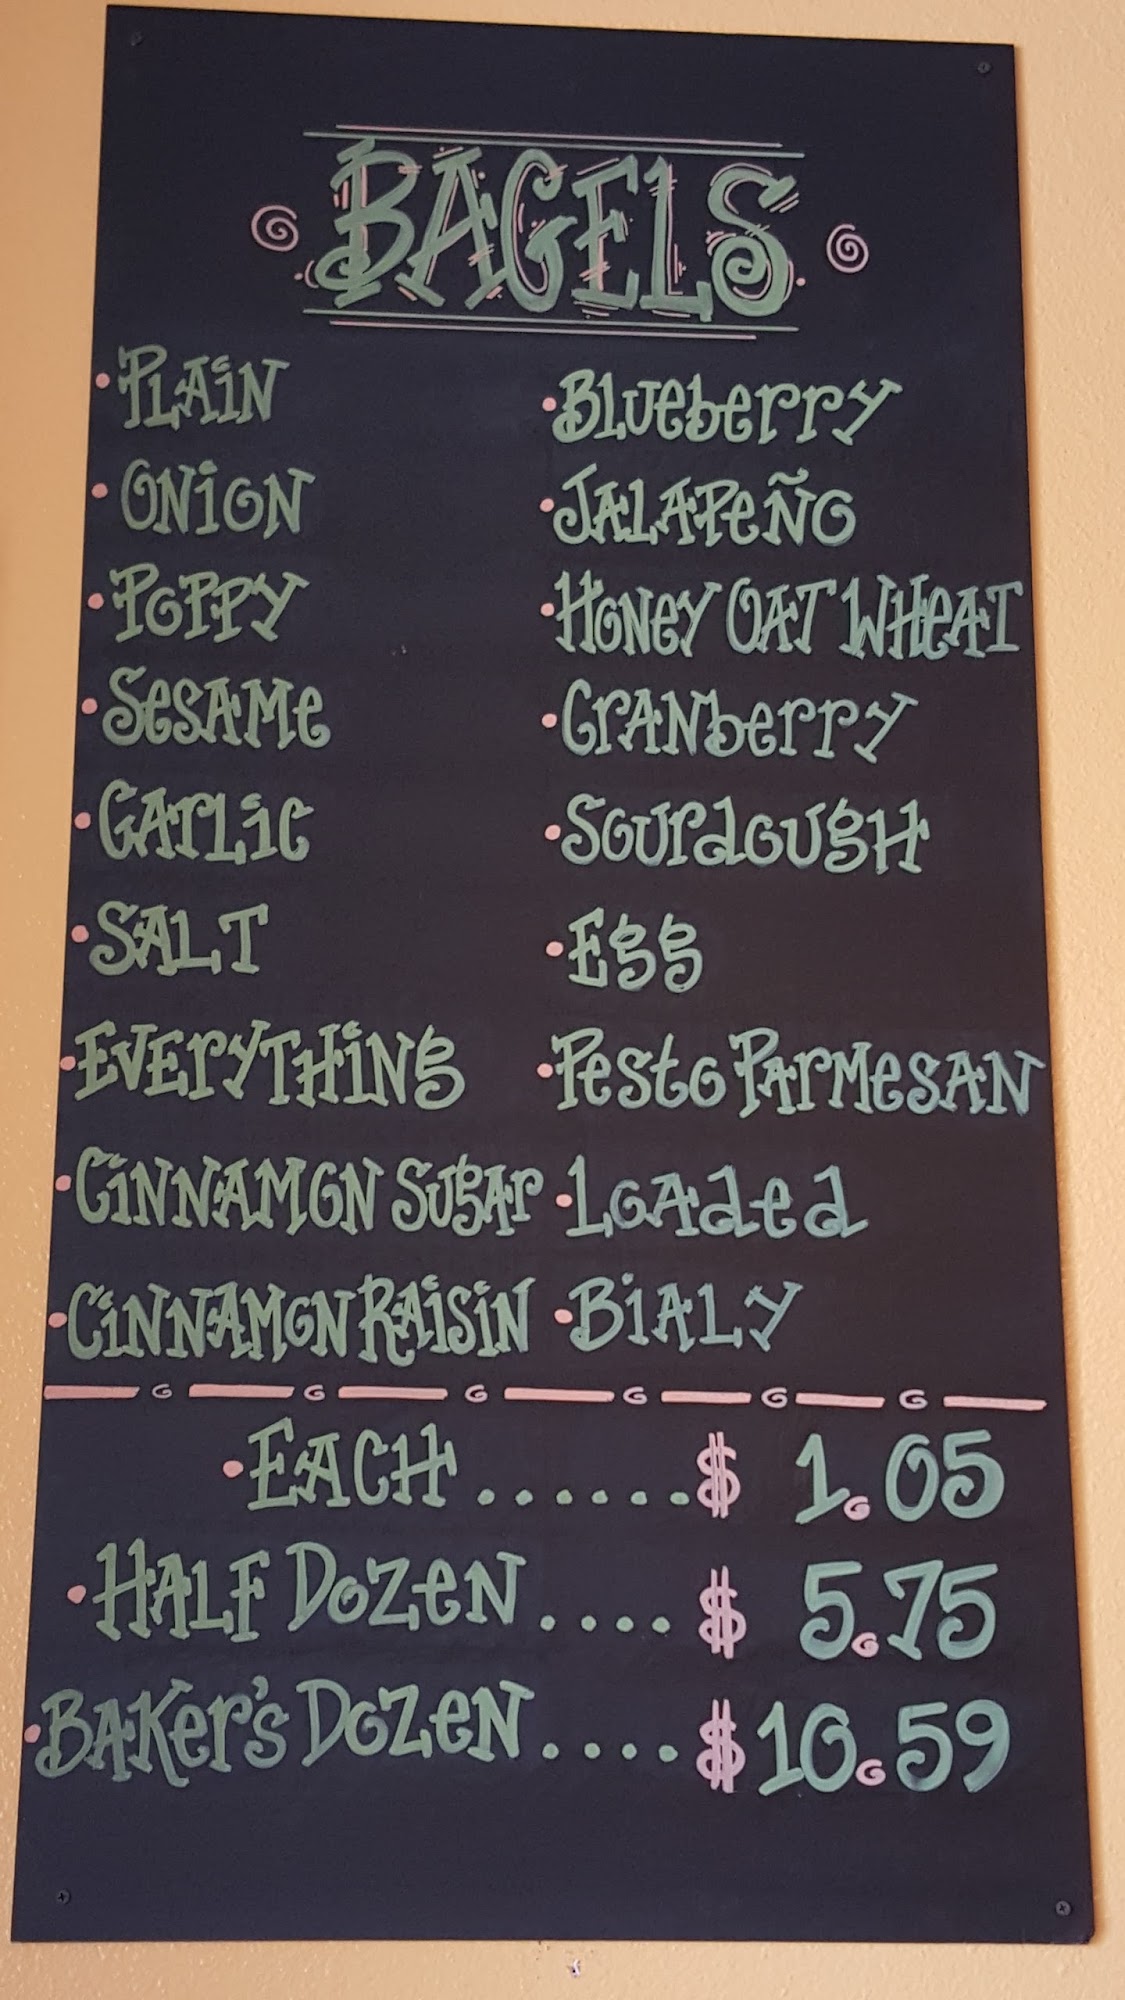 BAGELS
• PLAiN
• ONiON
• POPPY
• SeSAMe
• GArLiC
• SALT
• EVErYTHiNg
• CiNNAMON SugAr
• CiNNAMON RAiSiN
• Blueberry
• JALAPeÑO
• HONey OAT WHeAT
• CrANberry
• SOurdOugH
• Egg
• PestO PArMeSAN
• LOAded
• BiALY
• EACH ......$ 1.05
• HALF DOZeN ....$ 5.75
• BAKer's DOZeN ....$10.59